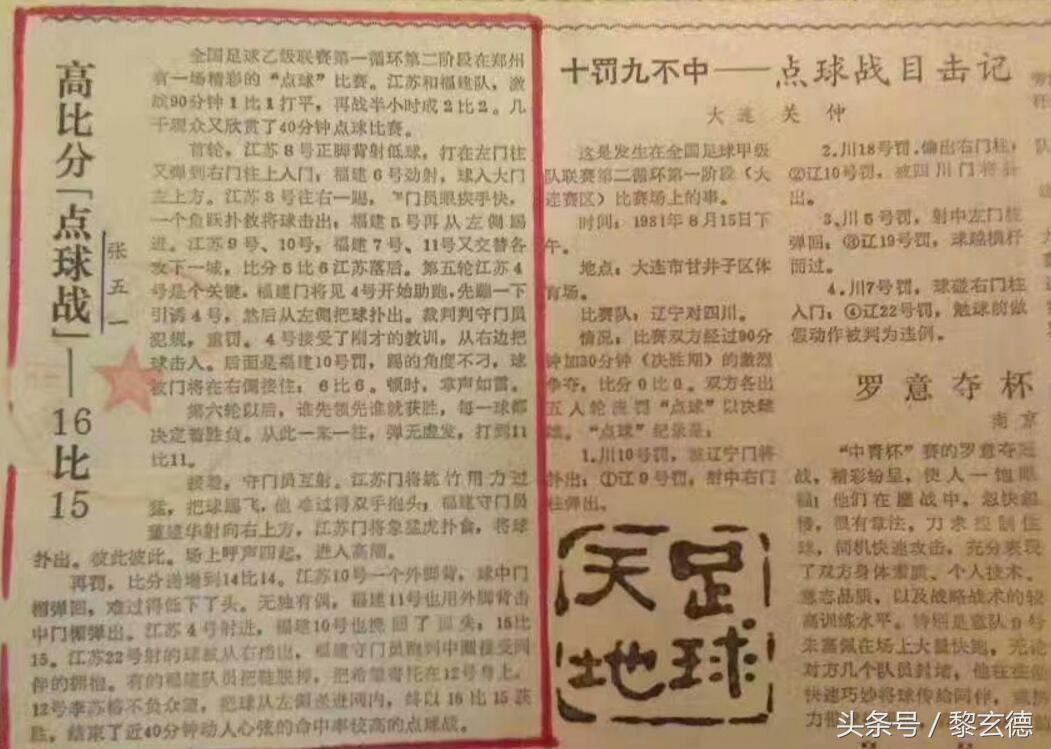 高比分「点球战」——16比15
张五一
全国足球乙级联赛第一循环第二阶段在郑州
有一场精彩的“点球”比赛。江苏和福建队，激
战90分钟1比1打平，再战半小时成2比2。几
千观众又欣赏了40分钟点球比赛。
首轮，江苏8号正脚背射低球，打在左门柱
又弹到右门柱上入门；福建6号劲射，球入大门
左上方。江苏3号往右一踢，门员眼疾手快，
一个鱼跃扑救将球击出；福建5号再从左侧踢
进。江苏9号、10号，福建7号、11号又交替各
攻下一城，比分5比6江苏落后。第五轮江苏4
号是个关键，福建门将见4号开始助跑，先蹦一下
引诱4号，然后从左侧把球扑出。裁判判守门员
犯规，重罚。4号接受了刚才的教训，从右边把
球击入。后面是福建10号罚，踢的角度不刁，球
被门将在右侧接住；6比6。顿时，掌声如雷。
第六轮以后，谁先领先谁就获胜，每一球都
决定着胜负。从此一来一往，弹无虚发，打到11
比11。
接着，守门员互射。江苏门将姚竹用力过
猛，把球踢飞，他难过得双手抱头；福建守门员
董建华射向右上方，江苏门将象猛虎扑食，将球
扑出。彼此彼此。场上呼声四起，进入高潮。
再罚，比分递增到14比14。江苏10号一个外脚背，球中门
楣弹回，难过得低下了头。无独有偶，福建11号也用外脚背击
中门楣弹出。江苏4号射进，福建10号也挽回了面头；15比
15。江苏22号射的球被从右挡出，福建守门员跑到中圈接受同
伴的拥抱。有的福建队员把鞋脱掉，把希望寄托在12号身上。
12号李苏榕不负众望，把球从左侧送进网内，终以16比15获
胜，结束了近40分钟动人心弦的命中率较高的点球战。
十罚九不中——点球战目击记
大连 关仲
这是发生在全国足球甲级
队联赛第二循环第一阶段（大
连赛区）比赛场上的事。
时间：1981年8月15日下
午。
地点：大连市甘井子区体
育场。
比赛队：辽宁对四川。
情况：比赛双方经过90分
钟加30分钟（决胜期）的激烈
争夺，比分0比0。双方各出
五人轮流罚“点球”以决雌
雄。“点球”纪录是：
1.川10号罚，被辽宁门将
扑出；①辽9号罚，射中右门
柱弹出。
2.川18号罚，偷出右门柱；
②辽10号罚，被四川门将扑
出。
3.川5号罚，射中左门柱
弹回；③辽19号罚，球越横杆
而过。
4.川7号罚，球碰右门柱
入门；④辽22号罚，触球前做
假动作被判为违例。
罗意夺杯
南京
“中青杯”赛的罗意夺冠
战，精彩纷呈，使人一饱眼
福；他们在鏖战中，忽快忽
慢，很有章法，刀求控制住
球，伺机快速攻击，充分表现
了双方身体素质、个人技术、
意志品质，以及战略战术的较
高训练水平。特别是意队9号
朱塞佩在场上大量快跑，无论
对方几个队员封堵，他在往能
快速巧妙将球传给同伴，
力
足球
天地
头条号／黎玄德